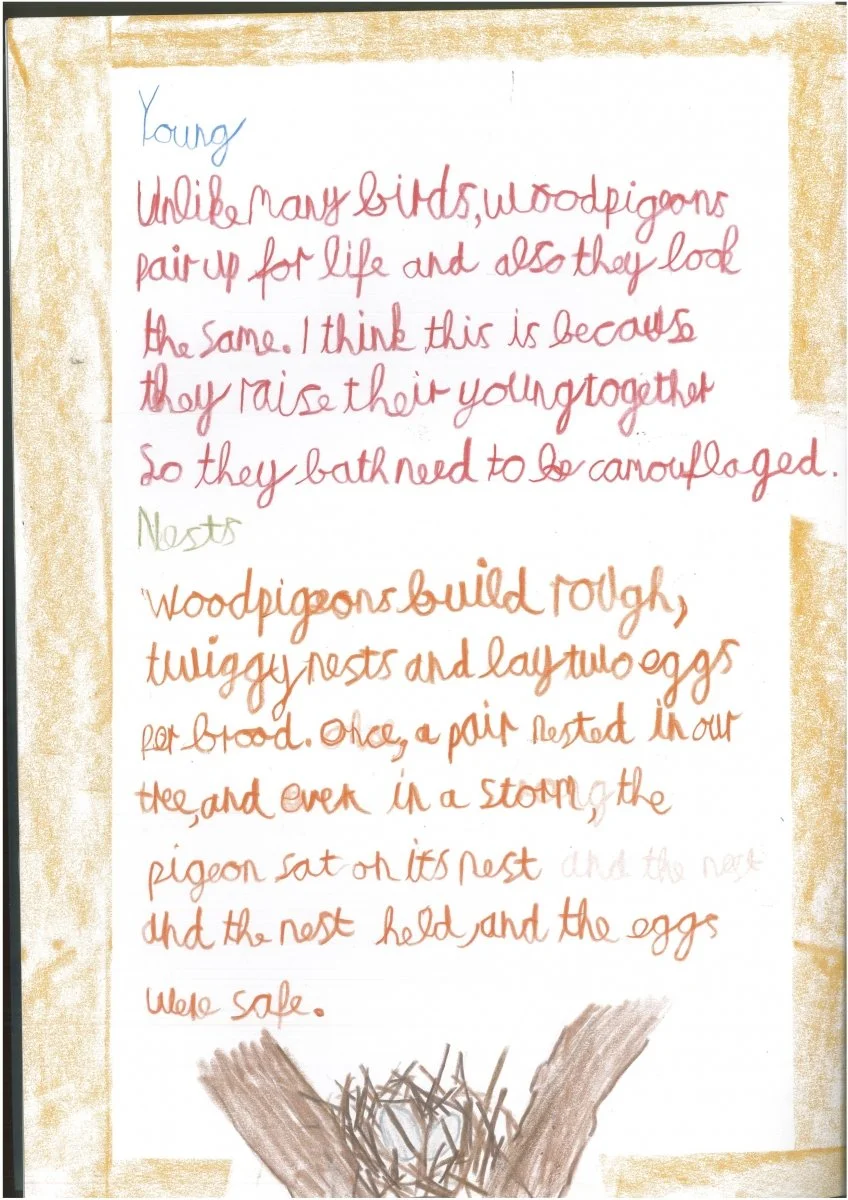 Young
Unlike many birds, woodpigeons
pair up for life and also they look
the same. I think this is because
they raise their young together
So they bath need to be camouflaged.
Nests
Woodpigeons build rough,
twiggy nests and lay two eggs
per brood. Once, a pair nested in our
tree, and even in a storm, the
pigeon sat on its nest and the nest
and the nest held, and the eggs
were safe.